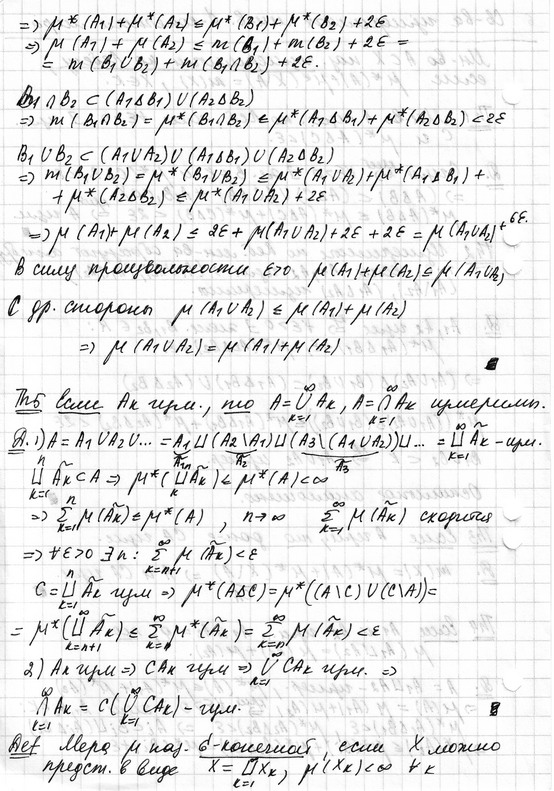 ⇒ μ*(A₁) + μ*(A₂) ≤ μ*(B₁) + μ*(B₂) + 2ε
⇒ μ(A₁) + μ(A₂) ≤ m(B₁) + m(B₂) + 2ε =
= m(B₁∪B₂) + m(B₁∩B₂) + 2ε.
B₁∩B₂ ⊂ (A₁ΔB₁)∪(A₂ΔB₂)
⇒ m(B₁∩B₂) = μ*(B₁∩B₂) ≤ μ*(A₁ΔB₁) + μ*(A₂ΔB₂) < 2ε
B₁∪B₂ ⊂ (A₁∪A₂)∪(A₁ΔB₁)∪(A₂ΔB₂)
⇒ m(B₁∪B₂) = μ*(B₁∪B₂) ≤ μ*(A₁∪A₂) + μ*(A₁ΔB₁) +
+ μ*(A₂ΔB₂) ≤ μ*(A₁∪A₂) + 2ε
⇒ μ(A₁) + μ(A₂) ≤ 2ε + μ(A₁∪A₂) + 2ε + 2ε = μ(A₁∪A₂) + 6ε.
В силу произвольности ε>0, μ(A₁) + μ(A₂) ≤ μ(A₁∪A₂)
С др. стороны μ(A₁∪A₂) ≤ μ(A₁) + μ(A₂)
⇒ μ(A₁∪A₂) = μ(A₁) + μ(A₂)
Th5 Если Aₖ изм., то A = ⋃_{k=1}^∞ Aₖ, A = ⋂_{k=1}^∞ Aₖ измеримы.
Д. 1) A = A₁∪A₂∪... = A₁ ⊔ (A₂\A₁) ⊔ (A₃\(A₁∪A₂)) ⊔ ... = ⊔_{k=1}^∞ Ãₖ - изм.
Ã₂ Ã₃
⊔_{k=1}^n Ãₖ ⊂ A ⇒ μ*(⊔_k Ãₖ) ≤ μ*(A) < ∞
⇒ Σ_{k=1}^n μ(Ãₖ) ≤ μ*(A), n→∞ Σ_{k=1}^∞ μ(Ãₖ) сходится
⇒ ∀ε>0 ∃n: Σ_{k=n+1}^∞ μ(Ãₖ) < ε
C = ⊔_{k=1}^n Ãₖ изм ⇒ μ*(AΔC) = μ*((A\C)∪(C\A)) =
= μ*(⊔_{k=n+1}^∞ Ãₖ) ≤ Σ_{k=n}^∞ μ*(Ãₖ) = Σ_{k=n}^∞ μ(Ãₖ) < ε
2) Aₖ изм ⇒ CAₖ изм ⇒ ⋃_{k=1}^∞ CAₖ изм. ⇒
⋂_{k=1}^∞ Aₖ = C(⋃_{k=1}^∞ CAₖ) - изм.
Def Мера μ наз. σ-конечной, если X можно
предст. в виде X = ⊔_{k=1}^∞ Xₖ, μ(Xₖ) < ∞ ∀k